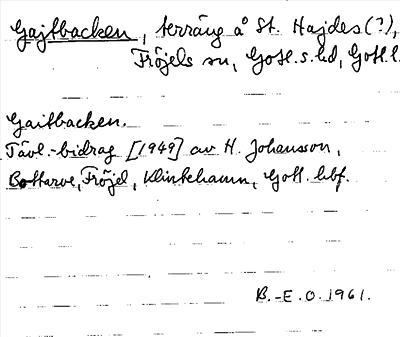 Gajtbacken, terräng å St. Hajdes (?),
Fröjels sn, Gotl. s. hd, Gotl. l.
Gaitbacken.
Tävl.-bidrag [1949] av H. Johansson,
Bottarve, Fröjel, Klintehamn, Gotl. hbf.
B.-E. O. 1961.